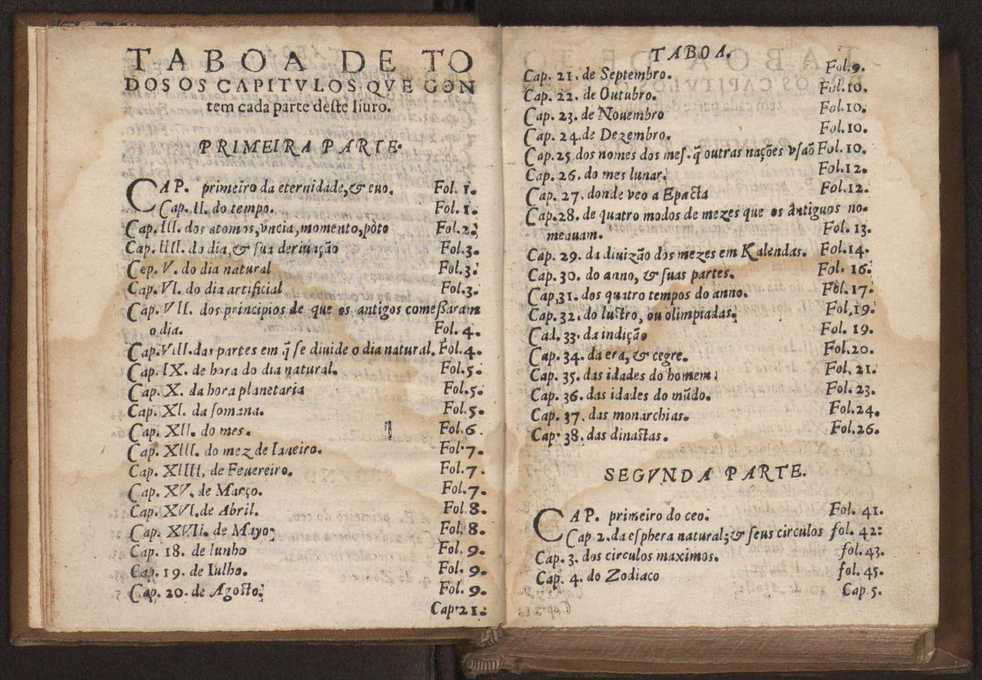 TABOA DE TO
DOS OS CAPITVLOS QVE CON
tem cada parte deste liuro.
PRIMEIRA PARTE.
CAP. primeiro da eternidade, & euo. Fol. 1.
Cap. II. do tempo. Fol. 1.
Cap. III. dos atomos, vncia, momento, põto Fol. 2.
Cap. IIII. do dia, & sua deriuação Fol. 3.
Cep. V. do dia natural Fol. 3.
Cap. VI. do dia artificial Fol. 3.
Cap. VII. dos principios de que os antigos comessaram
o dia. Fol. 4.
Cap. VIII. das partes em q̃ se diuide o dia natural. Fol. 4.
Cap. IX. de hora do dia natural. Fol. 5.
Cap. X. da hora planetaria Fol. 5.
Cap. XI. da somana. Fol. 5.
Cap. XII. do mes. Fol. 6.
Cap. XIII. do mez de Ianeiro. Fol. 7.
Cap. XIIII. de Feuereiro. Fol. 7.
Cap. XV. de Março. Fol. 7.
Cap. XVI. de Abril. Fol. 8.
Cap. XVII. de Mayo. Fol. 8.
Cap. 18. de Iunho Fol. 9.
Cap. 19. de Iulho. Fol. 9.
Cap. 20. de Agosto. Fol. 9.
Cap. 21.
TABOA.
Cap. 21. de Septembro. Fol. 9.
Cap. 22. de Outubro. Fol. 10.
Cap. 23. de Nouembro Fol. 10.
Cap. 24. de Dezembro. Fol. 10.
Cap. 25 dos nomes dos mes. q̃ outras nações vsaõ Fol. 10.
Cap. 26. do mes lunar. Fol. 12.
Cap. 27. donde veo a Epacta Fol. 12.
Cap. 28. de quatro modos de mezes que os antiguos no-
meauam. Fol. 13.
Cap. 29. da diuizão dos mezes em Kalendas. Fol. 14.
Cap. 30. do anno, & suas partes. Fol. 16.
Cap. 31. dos quatro tempos do anno. Fol. 17.
Cap. 32. do lustro, ou olimpiadas. Fol. 19.
Cad. 33. da indição Fol. 19.
Cap. 34. da era, & cegre. Fol. 20.
Cap. 35. das idades do homem. Fol. 21.
Cap. 36. das idades do mũdo. Fol. 23.
Cap. 37. das monarchias. Fol. 24.
Cap. 38. das dinastas. Fol. 26.
SEGVNDA PARTE.
CAP. primeiro do ceo. Fol. 41.
Cap 2. da esphera natural; & seus circulos fol. 42:
Cap. 3. dos circulos maximos. fol. 43.
Cap. 4. do Zodiaco fol. 45.
Cap. 5.